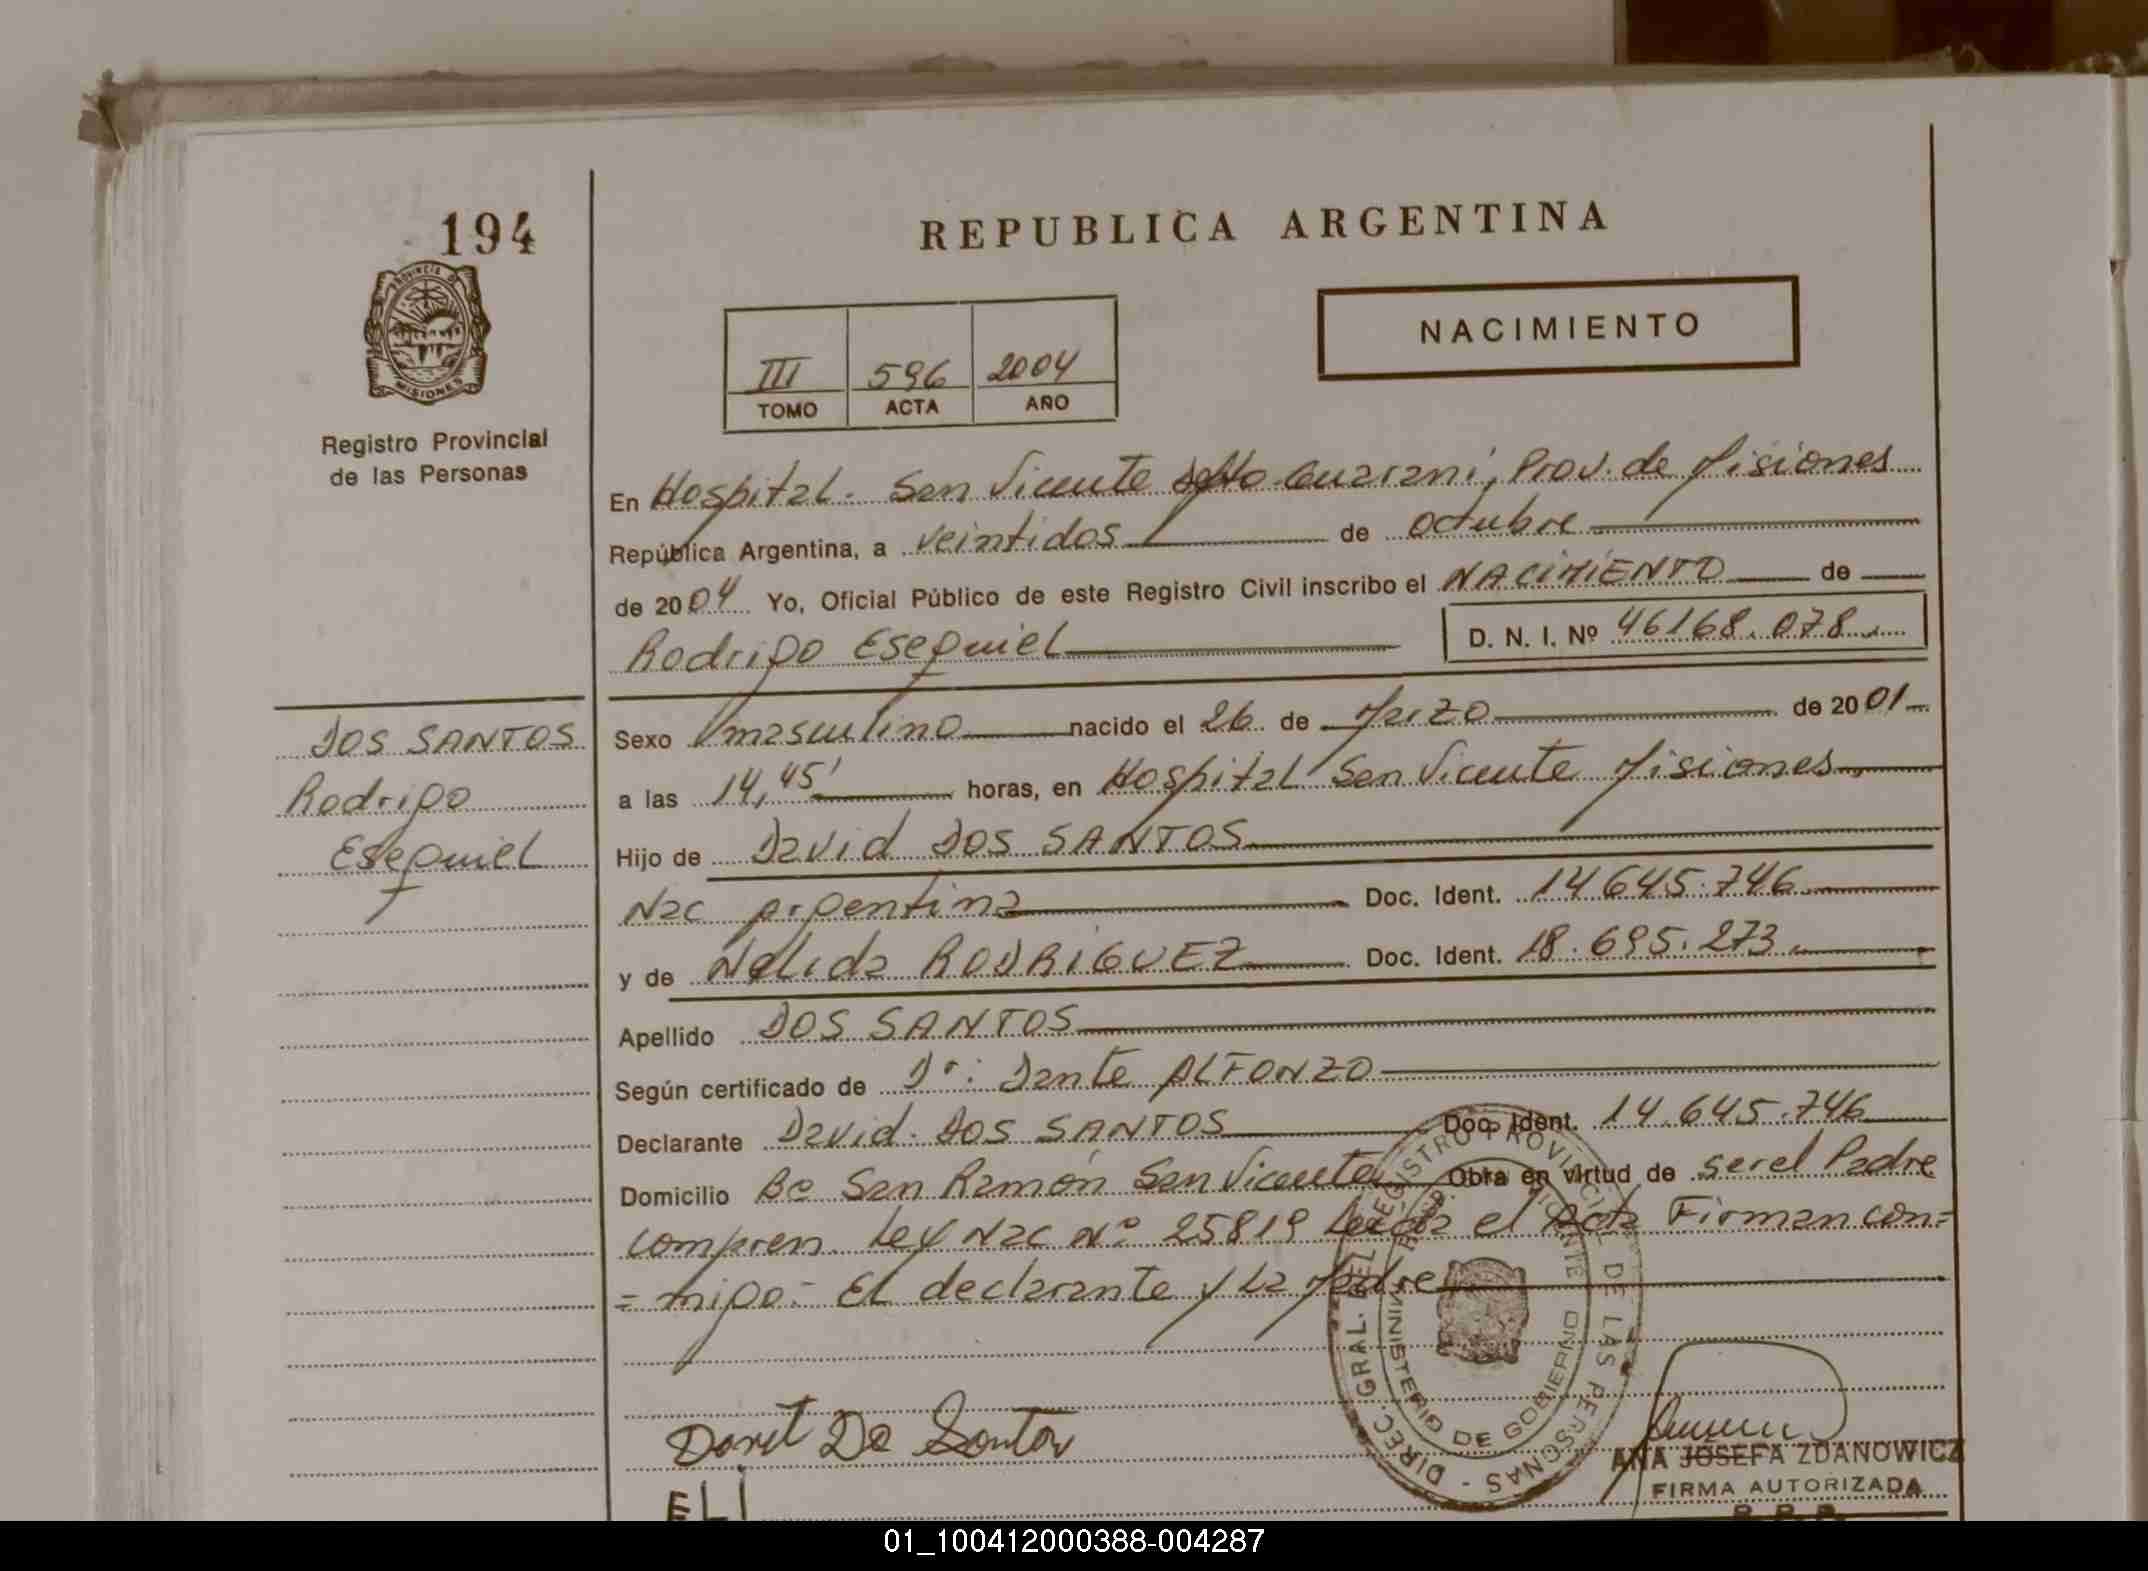 194
PROVINCIA DE
MISIONES
Registro Provincial
de las Personas
REPUBLICA ARGENTINA
NACIMIENTO
III 596 2004
TOMO ACTA AÑO
En Hospital. San Vicente Dpto. Guaraní, Prov. de Misiones
República Argentina, a veintidos de octubre
de 2004 Yo, Oficial Público de este Registro Civil inscribo el NACIMIENTO de
Rodrigo Esequiel D. N. I. Nº 46168.078
DOS SANTOS
Rodrigo
Esequiel
Sexo masculino nacido el 26 de Marzo de 2001
a las 14,45' horas, en Hospital San Vicente Misiones
Hijo de David DOS SANTOS
Nac Argentina Doc. Ident. 14.645.746
y de Nelida RODRIGUEZ Doc. Ident. 18.695.273
Apellido DOS SANTOS
Según certificado de Dr: Dante ALFONZO
Declarante David. DOS SANTOS Doc. Ident. 14.645.746
Domicilio Bº San Ramón San Vicente Obra en virtud de ser el Padre
compren. Ley Nac Nº 25819 Leida el Acta Firman con=
=migo.- El declarante y La Madre
DIREC. GRAL. DEL REGISTRO PROVINCIAL DE LAS PERSONAS -
MINISTERIO DE GOBIERNO
ANA JOSEFA ZDANOWICZ
FIRMA AUTORIZADA
R.P.P.
01_100412000388-004287